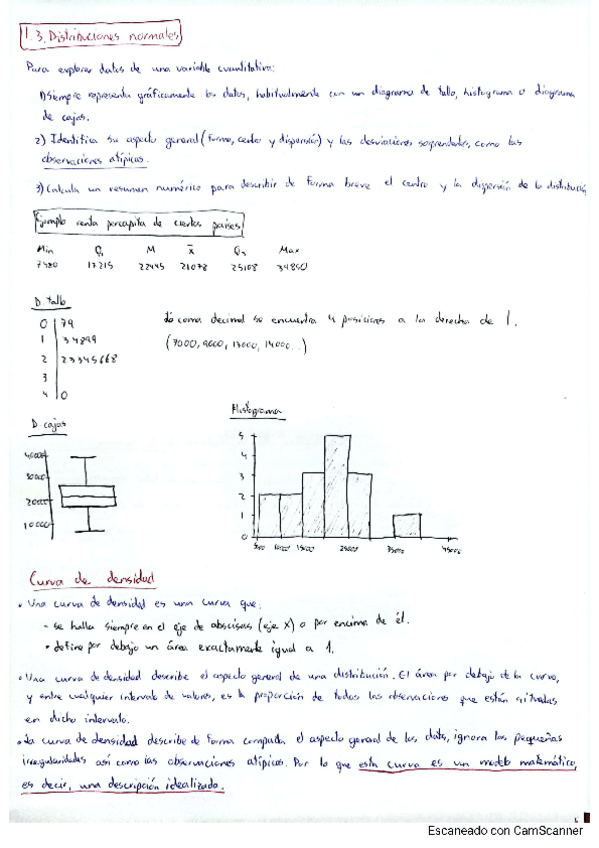 1.3. Distribuciones normales
Para explorar datos de una variable cuantitativa:
1) Siempre representa gráficamente los datos, habitualmente con un diagrama de tallo, histograma o diagrama
de cajas.
2) Identifica su aspecto general (forma, centro y dispersión) y las desviaciones sorprendentes, como las
observaciones atípicas.
3) Calcula un resumen numérico para describir de forma breve el centro y la dispersión de la distribución
Ejemplo renta percapita de ciertos países
Min Q₁ M x̄ Q₃ Max
17215 22445 21078 25108
D. tallo
0 | 79
1 | 34899
2 | 23345668
3 |
4 | 0
La coma decimal se encuentra 4 posiciones a la derecha de 1.
(7000, 9000, 13000, 14000...)
D. cajas
40000
30000
20000
10000
Histograma
5
4
3
2
1
0
10000 15000 25000 35000 45000
Curva de densidad
• Una curva de densidad es una curva que:
- se halla siempre en el eje de abscisas (eje x) o por encima de él.
• define por debajo un área exactamente igual a 1.
• Una curva de densidad describe el aspecto general de una distribución. El área por debajo de la curva,
y entre cualquier intervalo de valores, es la proporción de todas las observaciones que están situadas
en dicho intervalo.
• La curva de densidad describe de forma compacta el aspecto general de los datos, ignora las pequeñas
irregularidades así como las observaciones atípicas. Por lo que esta curva es un modelo matemático,
es decir, una descripción idealizada.
Escaneado con CamScanner